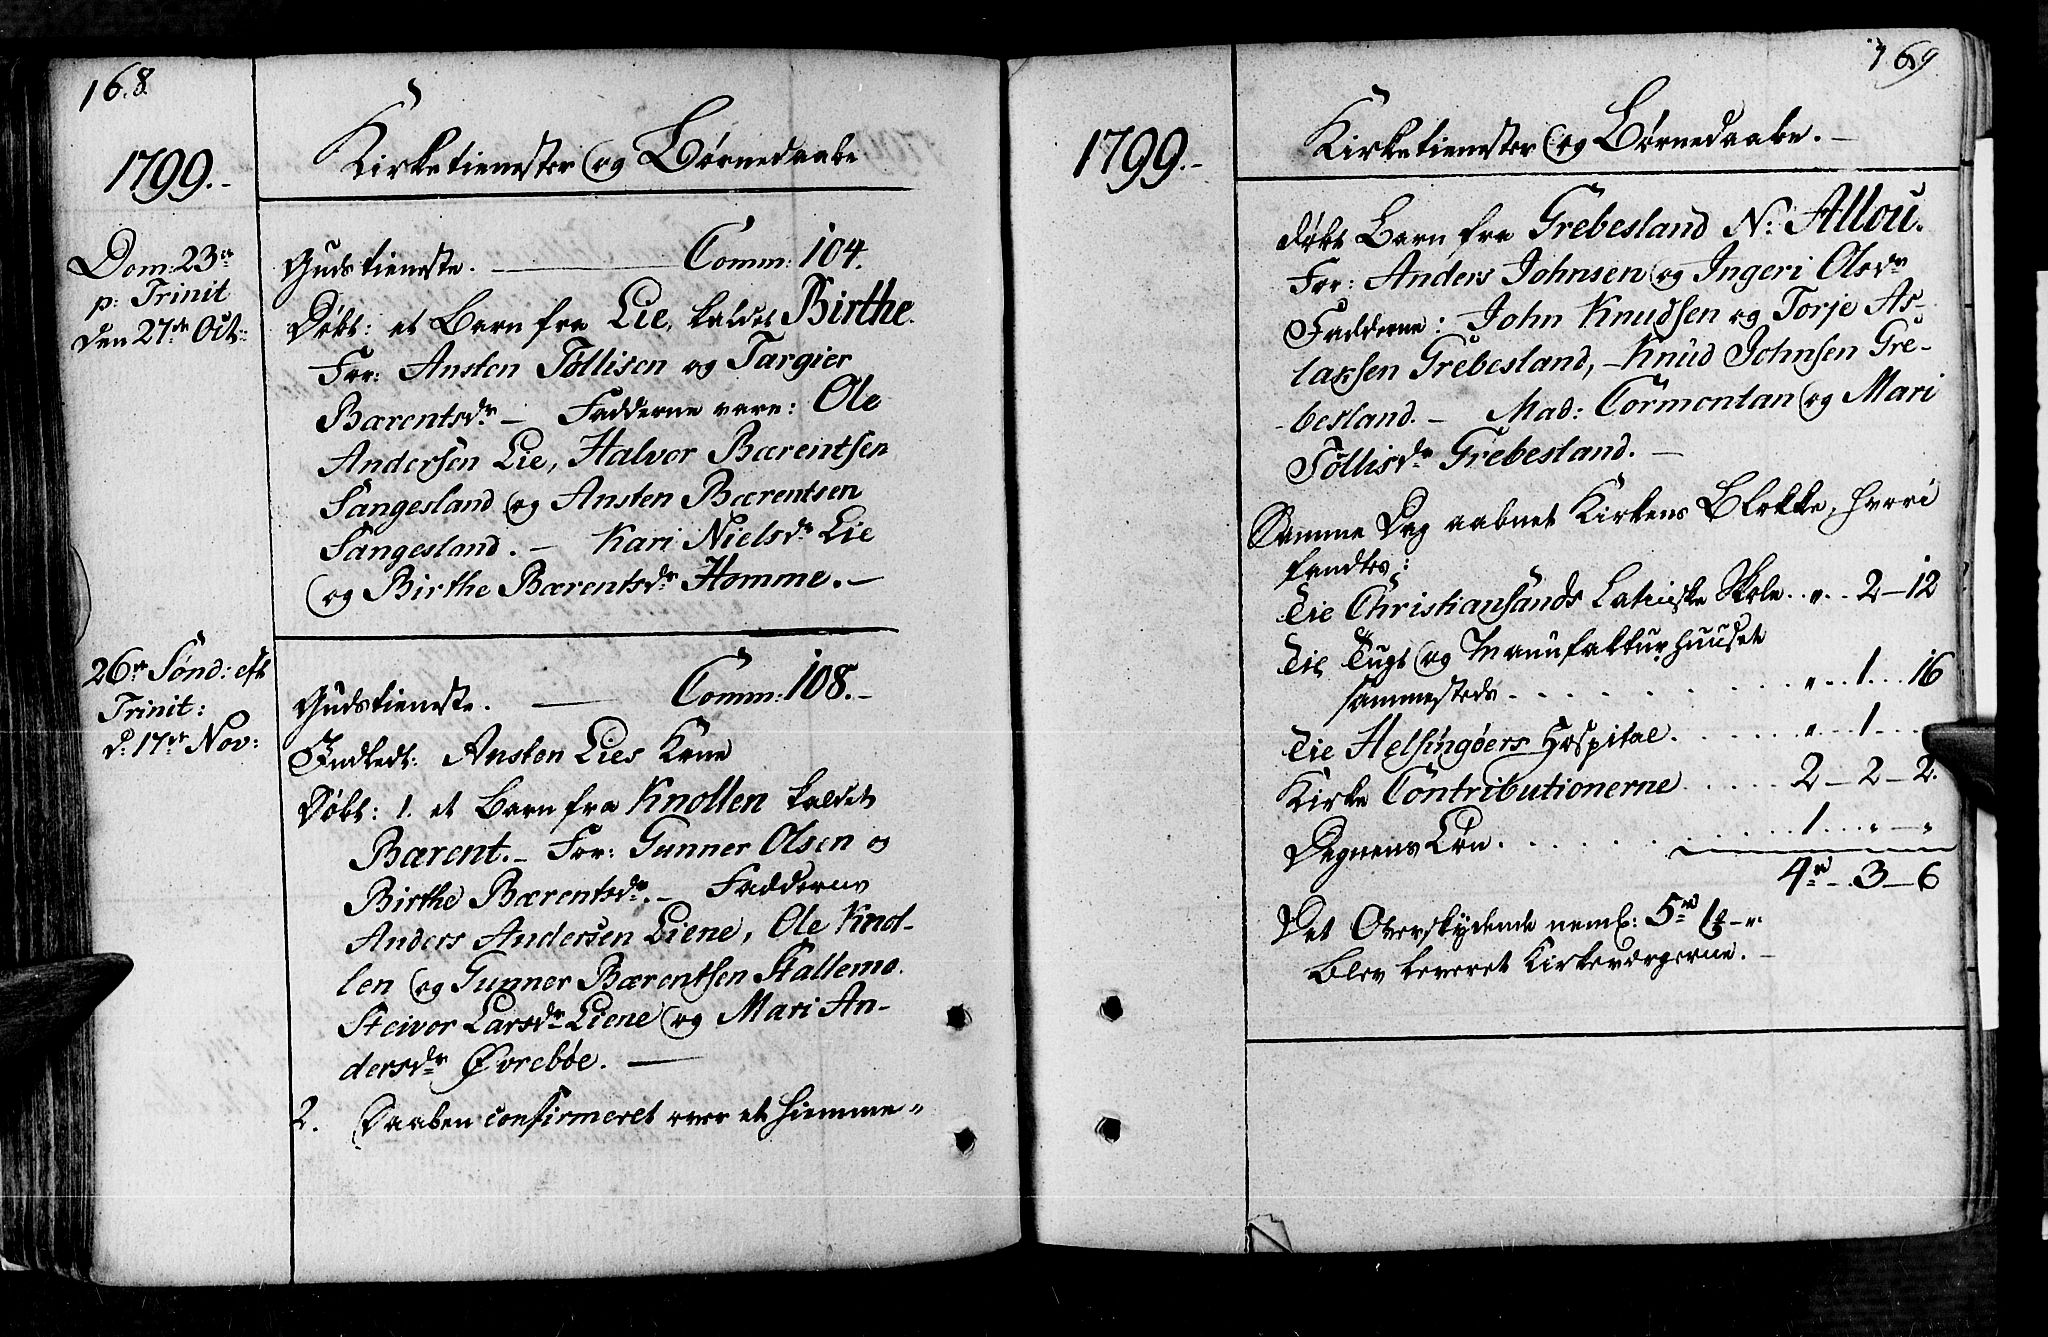 168
1799.-
Kirketienester og Børnedaabe
Dom: 23de
p: Trinit
den 27de Oct:
Gudstieneste. — Comm: 104.
Døbt: et Barn fra Lie, kaldet Birthe.
For: Ansten Tøllisen og Targier
Bærentsdr – Fadderne vare: Ole
Andersen Lie, Halvor Bærentsen
Sangesland og Ansten Bærentsen
Sangesland. – Kari Nielsdr Lie
og Birthe Bærentsdr Homme. –
26de Sønd: eft
Trinit:
d: 17de Nov:
Gudstieneste. — Comm: 108. –
Indledt: Ansten Lies Kone
Døbt: 1. et Barn fra Knollen kaldet
Bærent. – For: Gunner Olsen og
Birthe Bærentsdr. – Fadderne
Anders Andersen Liene, Ole Knol-
len og Gunner Bærentsen Stallemo.
Steivor Larsdr Liene og Mari An-
dersdr Øvrebøe. —
2. Daaben confirmeret over et hiemme-
169
1799. –
Kirketienester og Børnedaabe. –
døbt Barn fra Grebesland N: Allou.
For: Anders Johnsen og Ingeri Olsdr
Fadderne: John Knudsen og Torje As-
laksen Grebesland, – Knud Johnsen Gre-
-besland. – Mad: Cormontan og Mari
Tøllisdr Grebesland. –
Samme Dag aabnet Kirkens Blokke, hvori
fandtes:
Til Christiansands Latinske Skole . . " . . 2 – 12
Til Tugt og Manufakturhuuset
sammesteds . . . . " . . 1 . . 16
Til Helsingøers Hospital . . . . " . . 1 . .
Kirke Contributionerne . . . . 2 – 2 – 2.
Degnens Løn . . . . 1 . . " – "
4rd . . 3 – 6
Det Overskydende neml: 5rd 1½ – "
blev leveret Kirkeværgerne. –